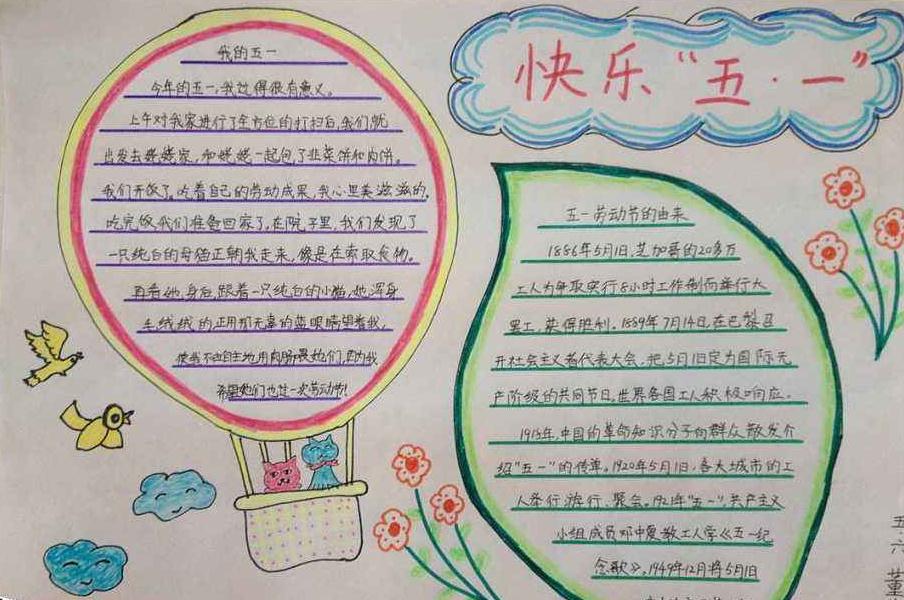 快乐“五·一”
我的五一
今年的五一,我过得很有意义。
上午对我家进行了全方位的打扫后,我们就
出发去姥姥家,和姥姥一起包了韭菜饼和肉饼。
我们开饭了,吃着自己的劳动成果,我心里美滋滋的。
吃完饭我们准备回家了,在院子里,我们发现了
一只纯白的母猫正朝我走来,像是在索取食物。
再看她身后跟着一只纯白的小猫,她浑身
毛绒绒的正用那无辜的蓝眼睛望着我,
使我不由自主地用肉肠喂她们,因为我
希望她们也过一次劳动节!
五一劳动节的由来
1886年5月1日,芝加哥的20多万
工人为争取实行8小时工作制而举行大
罢工,获得胜利。1889年7月14日,在巴黎召
开社会主义者代表大会,把5月1日定为国际无
产阶级的共同节日,世界各国工人积极响应。
1918年,中国的革命知识分子向群众散发介
绍“五一”的传单。1920年5月1日,各大城市的工
人举行游行、聚会。1921年“五一”共产主义
小组成员邓中夏教工人学《五一纪
念歌》,1949年12月将5月1日
五·六
董